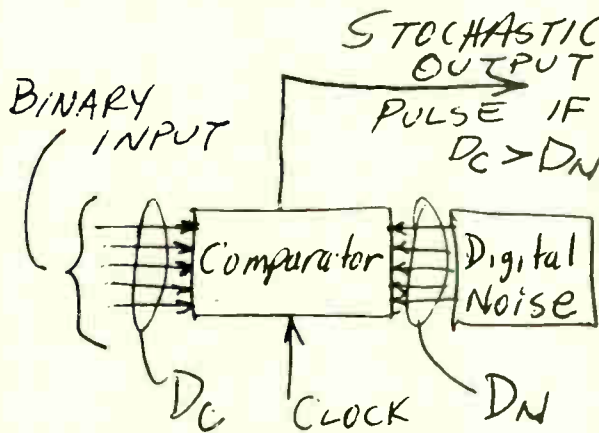 STOCHASTIC
OUTPUT
PULSE IF
D_C > D_N
BINARY
INPUT
Comparator
Digital
Noise
D_C
CLOCK
D_N